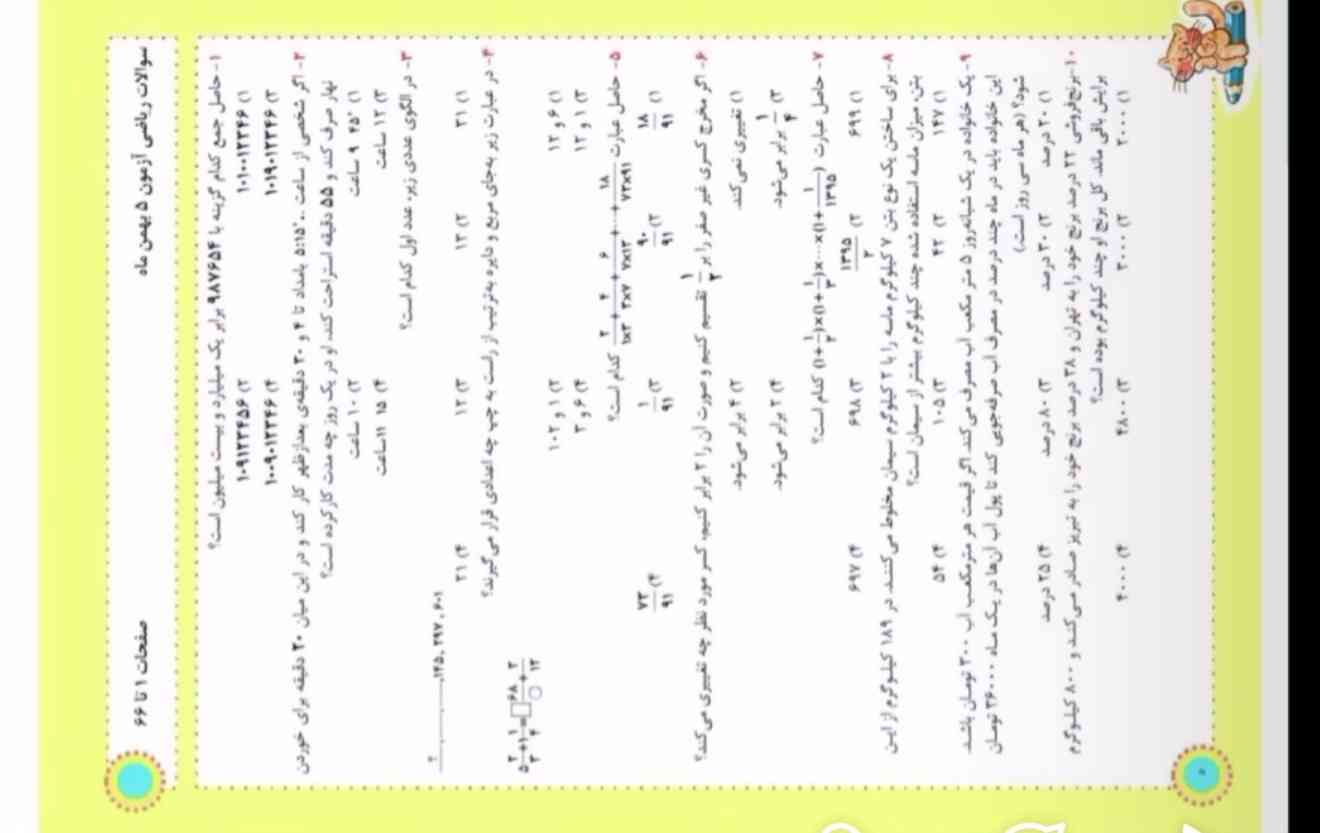 سوالات ریاضی آزمون ۵ بهمن ماه
صفحات ۱ تا ۶۶
۱- حاصل جمع کدام گزینه با ۹۸۷۶۵۴ برابر یک میلیارد و بیست میلیون است؟
۱) ۱۰۱۰۰۱۲۳۴۶ ۲) ۱۰۹۱۲۳۴۵۶
۳) ۱۰۱۹۰۱۲۳۴۶ ۴) ۱۰۰۹۰۱۲۳۴۶
۲- اگر شخصی از ساعت ۵:۱۵ بامداد تا ۴ و ۳۰ دقیقه‌ی بعدازظهر کار کند و در این میان ۲۰ دقیقه برای خوردن
نهار صرف کند و ۵۵ دقیقه استراحت کند، او در یک روز چه مدت کار کرده است؟
۱) ۴۵' ۹ ساعت ۲) ۱۰ ساعت
۳) ۱۲ ساعت ۴) ۱۵ ۱۱ساعت
۳- در الگوی عددی زیر، عدد اول کدام است؟
؟, ..., ..., ۱۴۵, ۲۹۷, ۶۰۱
۱) ۳۱ ۲) ۱۳ ۳) ۱۲ ۴) ۲۱
۴- در عبارت زیر به‌جای مربع و دایره به‌ترتیب از راست به چپ چه اعدادی قرار می‌گیرند؟
۵ ۲/۳ + ۱ ۱/۴ = □ ۶۸/○ + ۳/۱۲
۱) ۶ و ۱۲ ۲) ۱ و ۱۰۲
۳) ۱ و ۱۲ ۴) ۶ و ۳
۵- حاصل عبارت ۲/۱×۳ + ۴/۳×۷ + ۶/۷×۱۳ + ... + ۱۸/۷۳×۹۱ کدام است؟
۱) ۱۸/۹۱ ۲) ۹۰/۹۱ ۳) ۱/۹۱ ۴) ۷۳/۹۱
۶- اگر مخرج کسری غیر صفر را بر ۱/۲ تقسیم کنیم و صورت آن را ۲ برابر کنیم، کسر مورد نظر چه تغییری می‌کند؟
۱) تغییری نمی‌کند. ۲) ۴ برابر می‌شود.
۳) ۱/۴ برابر می‌شود. ۴) ۲ برابر می‌شود.
۷- حاصل عبارت (۱+۱/۲)×(۱+۱/۳)×...×(۱+۱/۱۳۹۵) کدام است؟
۱) ۶۹۹ ۲) ۱۳۹۵/۲ ۳) ۶۹۸ ۴) ۶۹۷
۸- برای ساختن یک نوع بتن ۷ کیلوگرم ماسه را با ۲ کیلوگرم سیمان مخلوط می‌کنند. در ۱۸۹ کیلوگرم از این
بتن، میزان ماسه استفاده شده چند کیلوگرم بیشتر از سیمان است؟
۱) ۱۴۷ ۲) ۴۲ ۳) ۱۰۵ ۴) ۵۴
۹- یک خانواده در یک شبانه‌روز ۵ متر مکعب آب مصرف می‌کند. اگر قیمت هر مترمکعب آب ۳۰۰ تومان باشد.
این خانواده باید در ماه چند درصد در مصرف آب صرفه‌جویی کند تا پول آب آن‌ها در یک ماه ۳۶۰۰۰ تومان
شود؟ (هر ماه سی روز است)
۱) ۲۰ درصد ۲) ۳۰ درصد ۳) ۸۰ درصد ۴) ۲۵ درصد
۱۰- برنج‌فروشی ۲۲ درصد برنج خود را به تهران و ۳۸ درصد برنج خود را به تبریز صادر می‌کند و ۸۰۰ کیلوگرم
برایش باقی ماند. کل برنج او چند کیلوگرم بوده است؟
۱) ۲۰۰۰ ۲) ۳۰۰۰ ۳) ۴۸۰۰ ۴) ۴۰۰۰